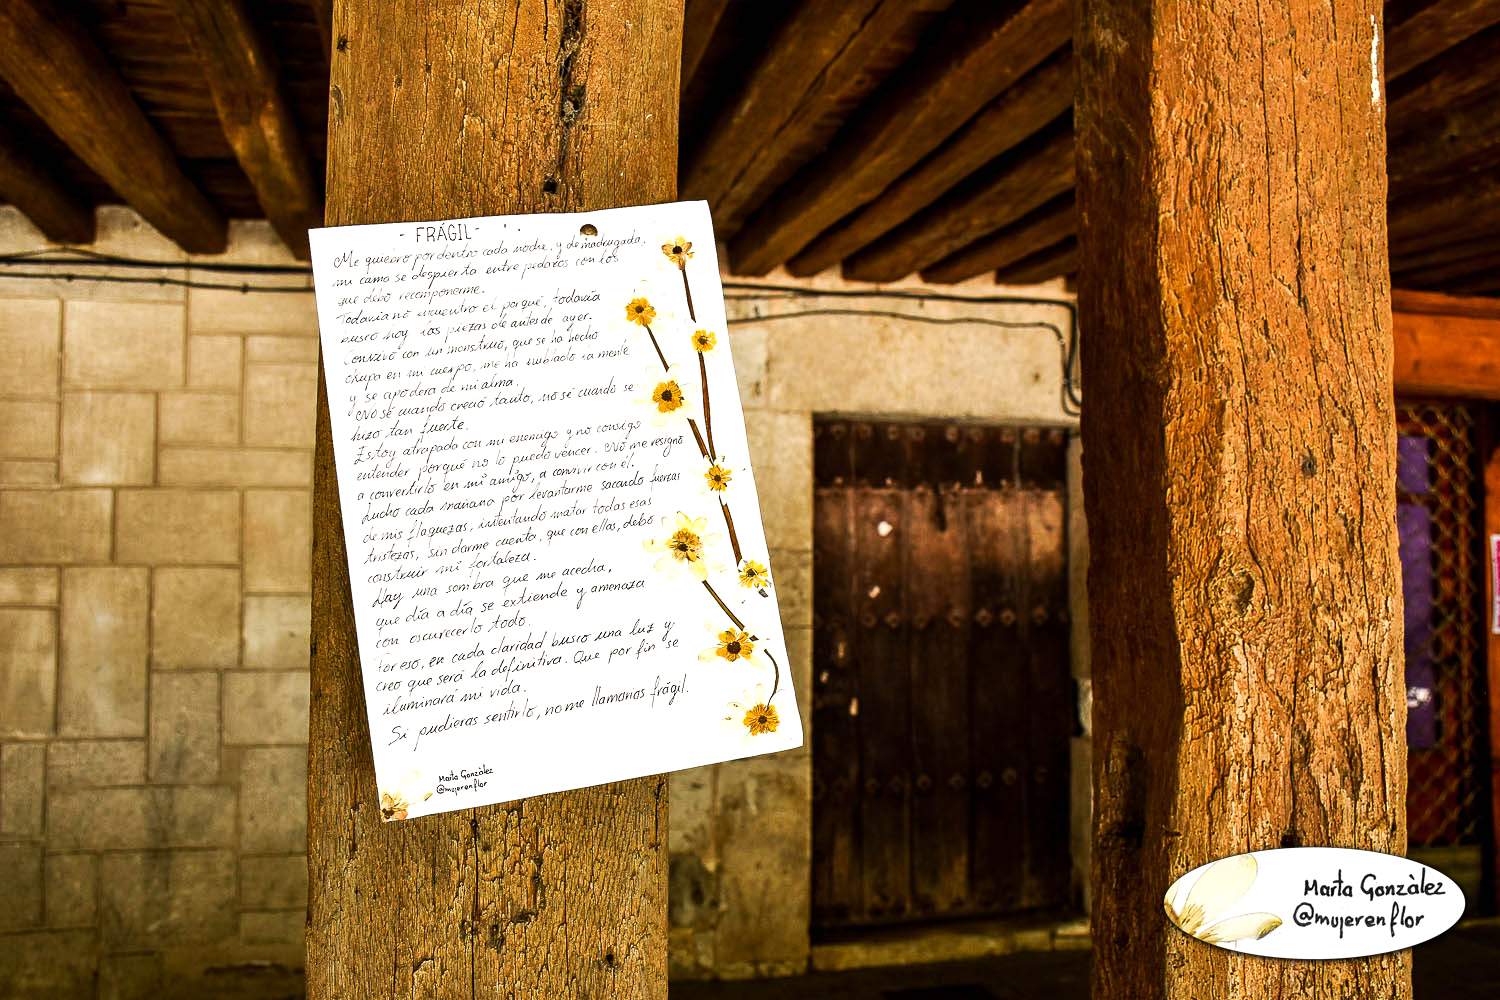 - FRÁGIL -
Me quiebro por dentro cada noche, y de madrugada,
mi cama se despierta entre pedazos con los
que debo recomponerme.
Todavía no encuentro el porqué, todavía
busco hoy las piezas de antes de ayer.
Convivo con un monstruo, que se ha hecho
okupa en mi cuerpo, me ha nublado la mente
y se apodera de mi alma.
No sé cuando creció tanto, no sé cuando se
hizo tan fuerte.
Estoy atrapada con mi enemigo y no consigo
entender porqué no lo puedo vencer. No me resigno
a convertirlo en mi amigo, a convivir con él.
Lucho cada mañana por levantarme sacando fuerzas
de mis flaquezas, intentando matar todas esas
tristezas, sin darme cuenta, que con ellas, debo
construir mi fortaleza.
Hay una sombra que me acecha,
que día a día se extiende y amenaza
con oscurecerlo todo.
Por eso, en cada claridad busco una luz y
creo que será la definitiva. Que por fin se
iluminará mi vida.
Si pudieras sentirlo, no me llamarías frágil.
Marta Gonzàlez
@mujerenflor
Marta Gonzàlez
@mujerenflor